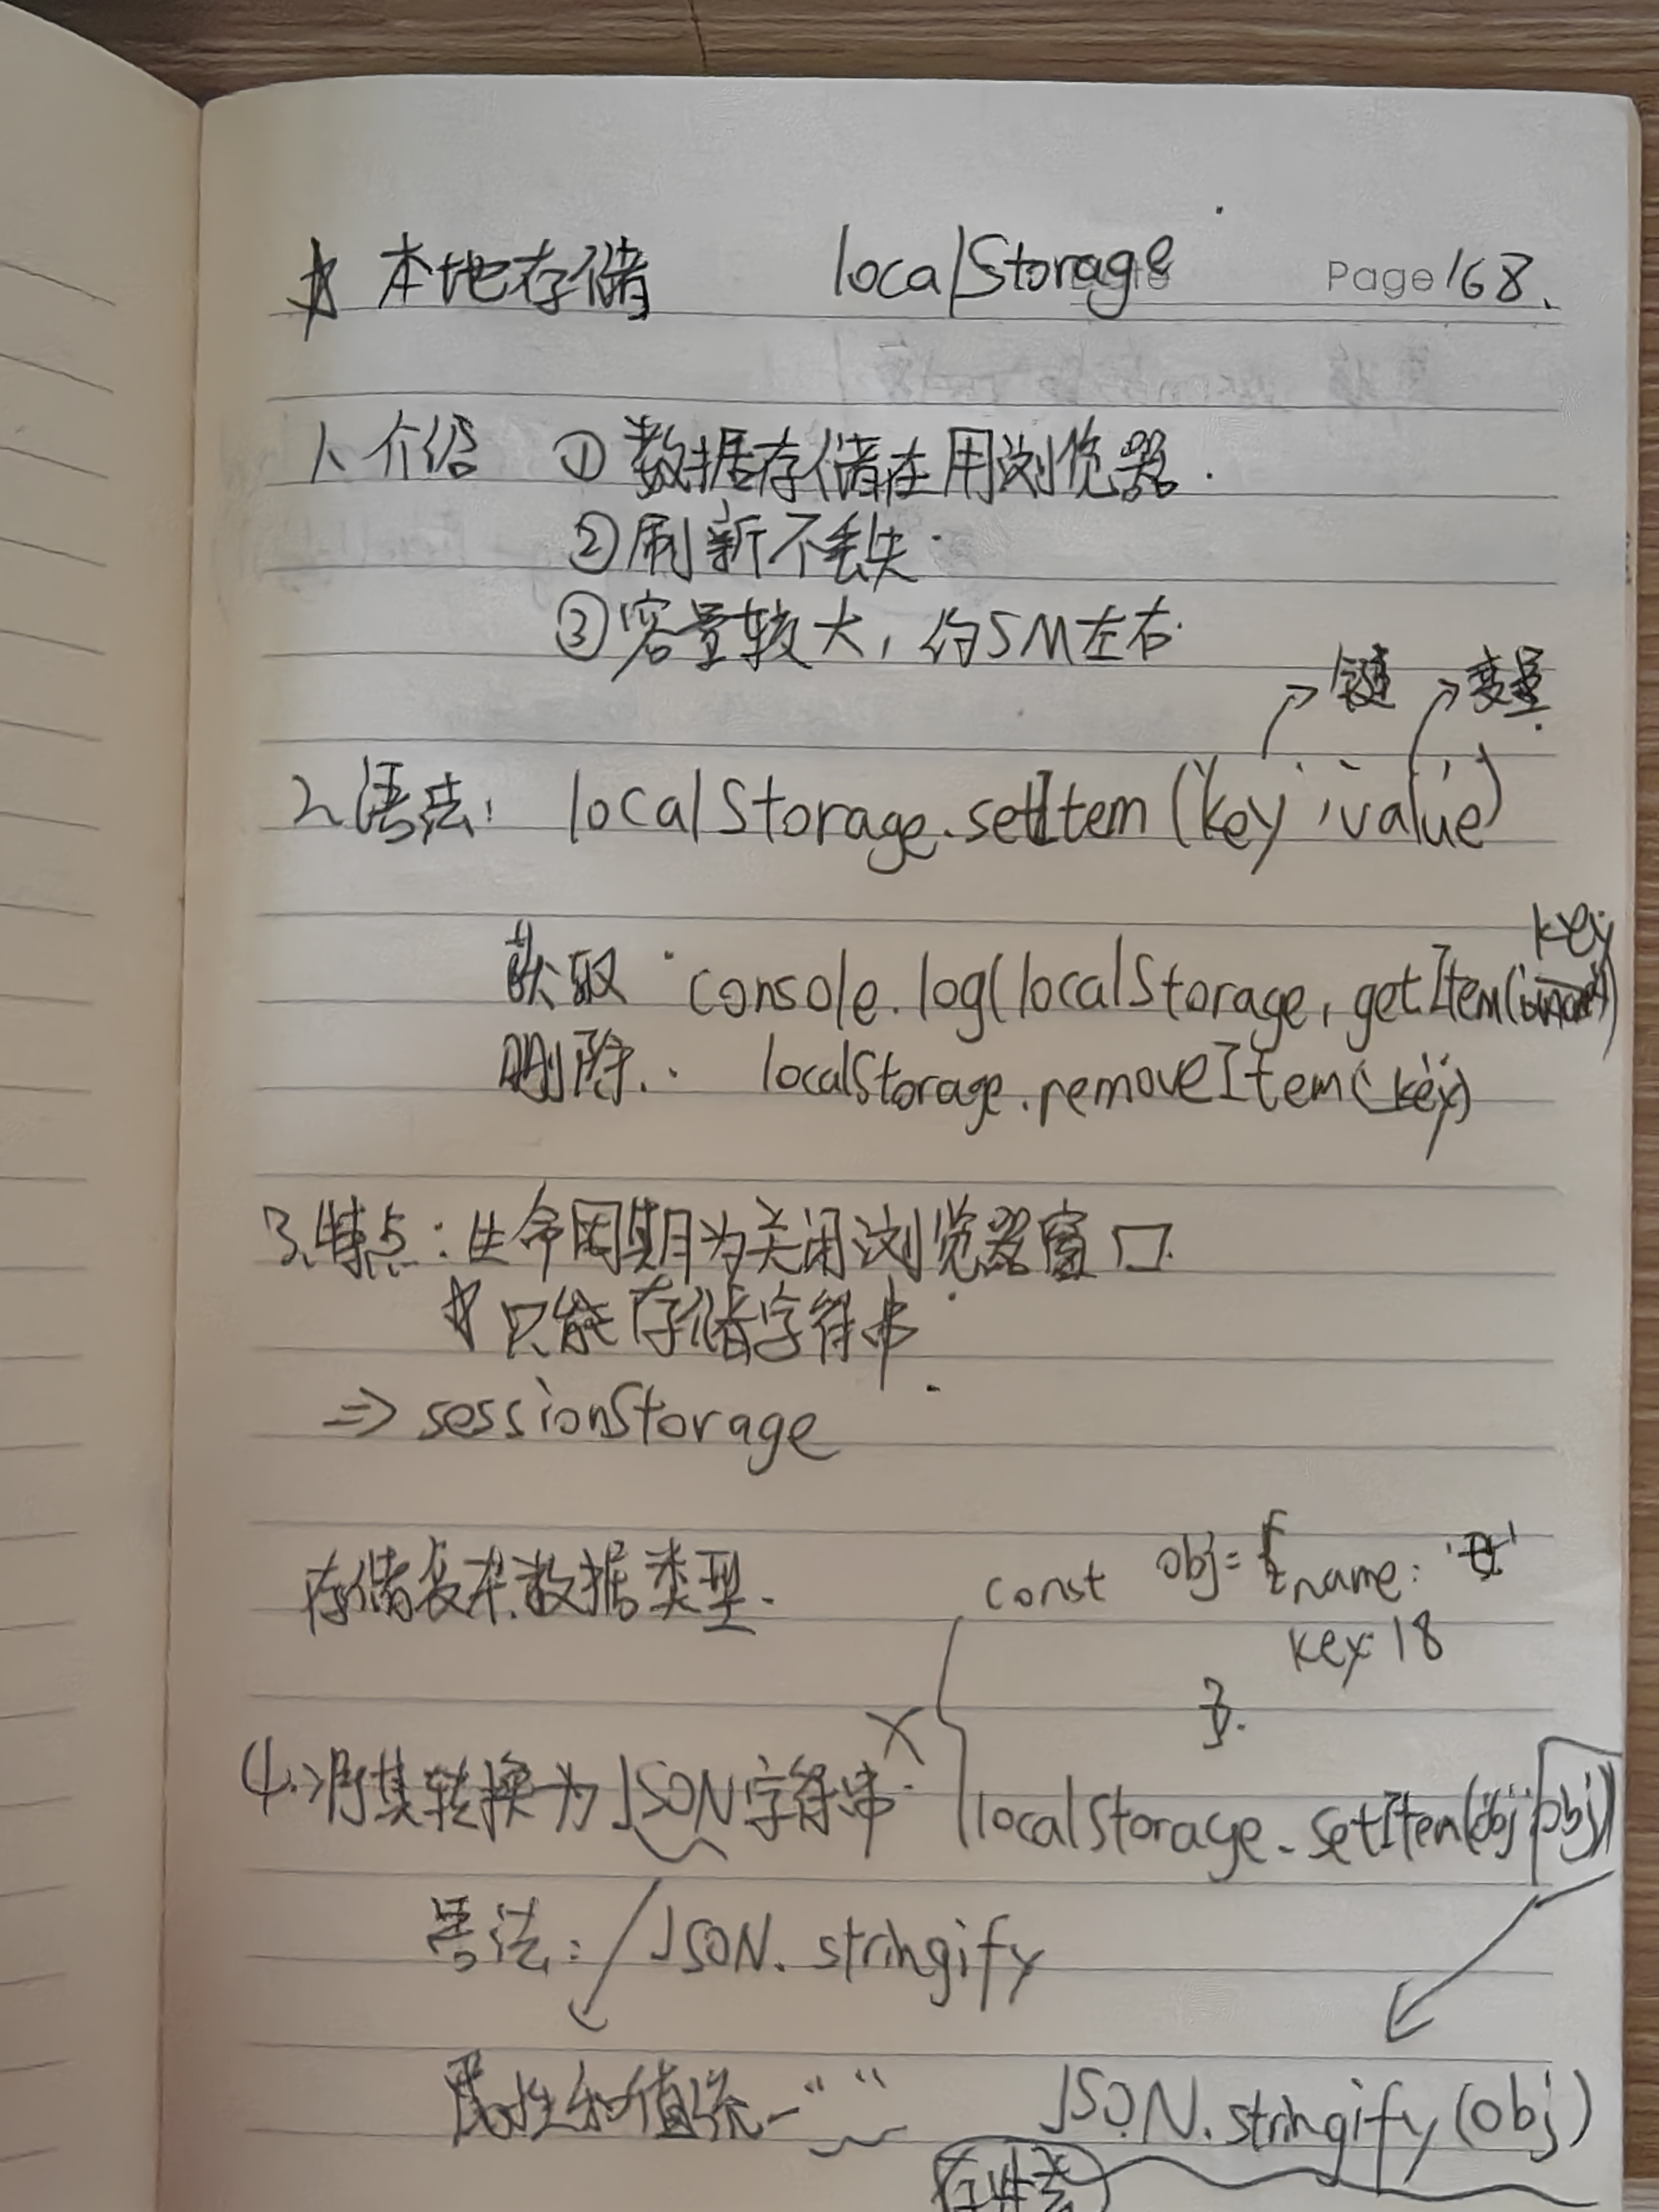 ☆ 本地存储 localStorage Page 168.
1、介绍 ① 数据存储在用浏览器.
② 刷新不丢失.
③ 容量较大，约5M左右.
键 变量.
2、语法: localStorage.setItem('key','value')
key
获取 console.log(localStorage.getItem('
删除. localStorage.removeItem('key')
3、特点: 生命周期为关闭浏览器窗口.
☆ 只能存储字符串.
⇒ sessionStorage
存储复杂数据类型. const obj = { name: '
key: 18
}.
4.将其转换为JSON字符串. X localStorage.setItem('obj', obj)
语法: JSON.stringify
属性和值统一" " JSON.stringify(obj)